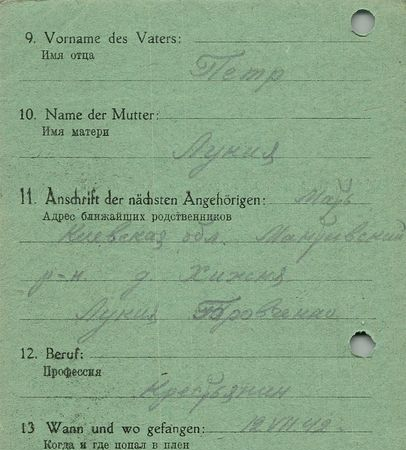 9. Vorname des Vaters:
Имя отца
Петр
10. Name der Mutter:
Имя матери
Лукия
11. Anschrift der nächsten Angehörigen: Мать
Адрес ближайших родственников
Киевская обл.
р-н д Хижня
Лукия
12. Beruf:
Профессия
Крестьянин
13 Wann und wo gefangen: 12 VII 42.
Когда и где попал в плен